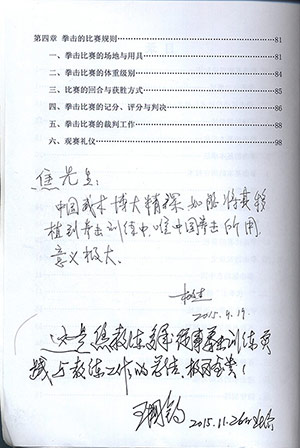 第四章 拳击的比赛规则 81
一、拳击比赛的场地与用具 81
二、拳击比赛的体重级别 84
三、比赛的回合与获胜方式 85
四、拳击比赛的记分、评分与判决 86
五、拳击比赛的裁判工作 88
六、观赛礼仪 98
焦先生：
中国武术博大精深，如能将其移
植到拳击训练中，唯中国拳击所用，
意义极大。
2015.9.19.
这是焦教练多年从事拳击训练实
践与教练工作的总结，极为宝贵！
2015.11.26